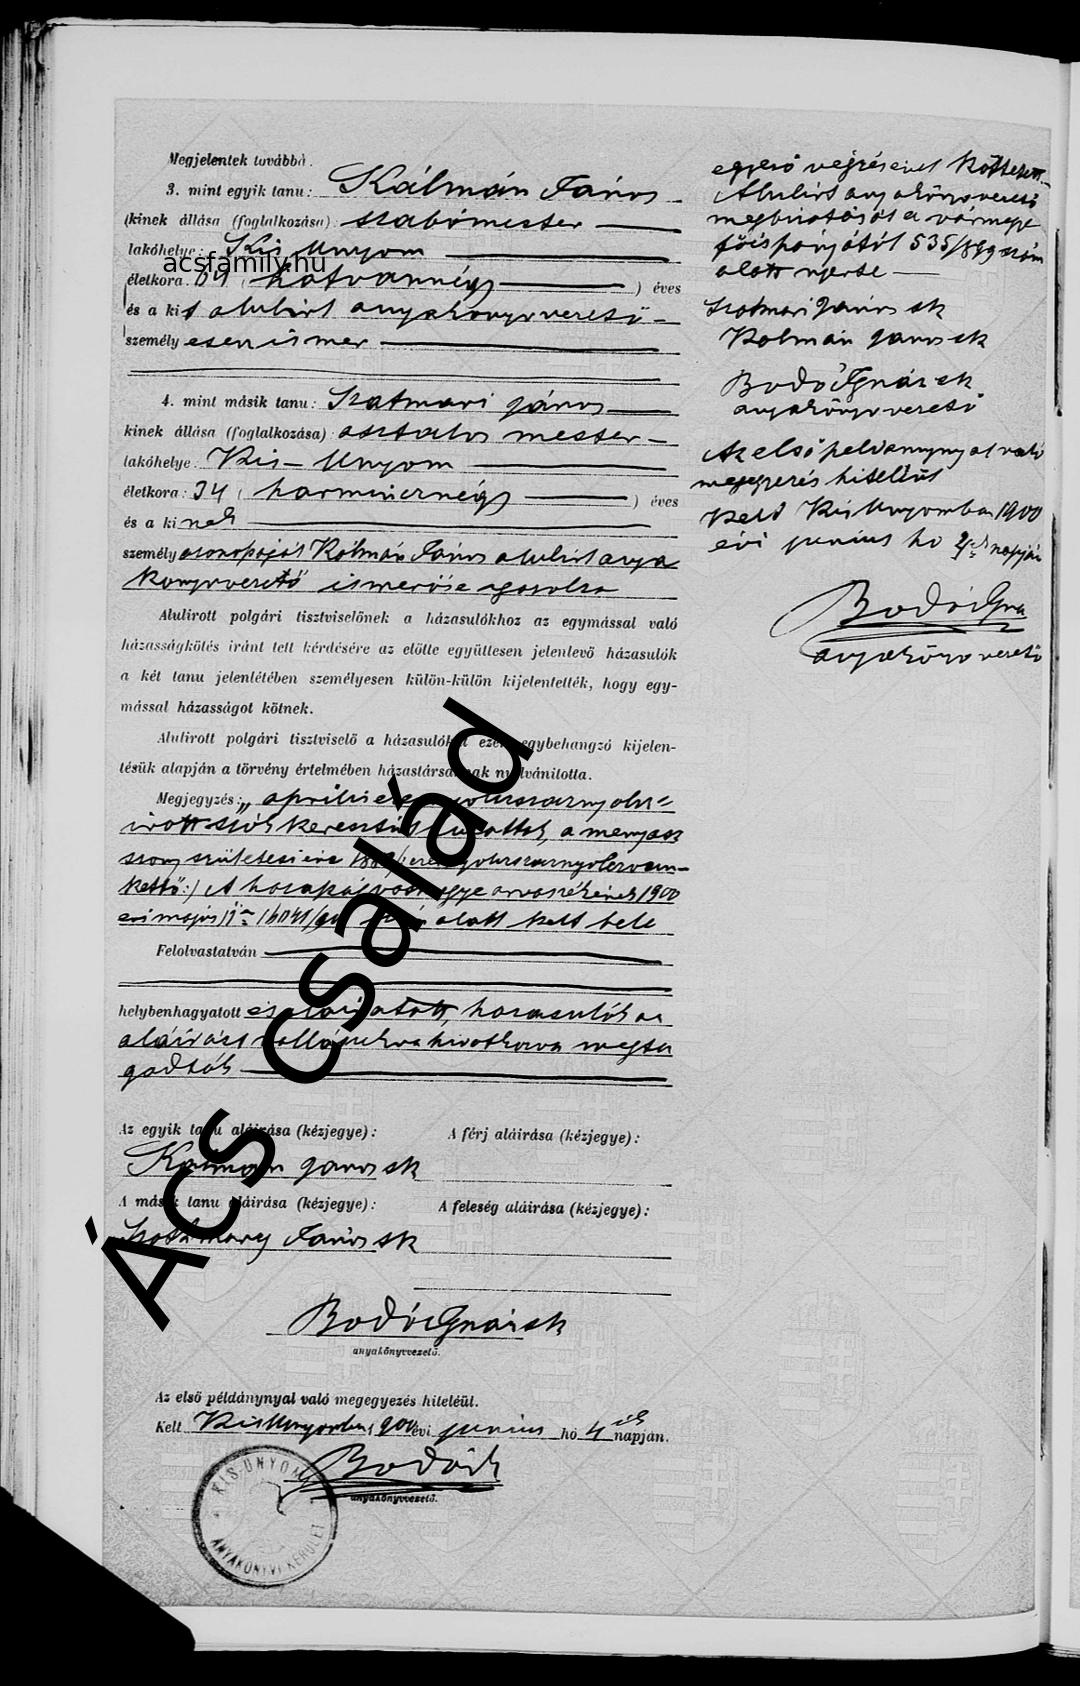 Megjelentek továbbá.
3. mint egyik tanu: Kálmán János
(kinek állása (foglalkozása) szabómester
lakóhelye: Kis Unyom
acsfamily.hu
életkora: 64 (hatvannégy) éves
és a kit alulirt anyakönyvvezető
személyesen ismer
4. mint másik tanu: Szatmari János
kinek állása (foglalkozása) asztalos mester
lakóhelye: Kis-Unyom
életkora: 34 (harmincznégy) éves
és a kinek
személyazonosságát Kálmán János alulirt anya
könyvvezető ismerőse igazolta
Alulirott polgári tisztviselőnek a házasulókhoz az egymással való
házasságkötés iránt tett kérdésére az előtte együttesen jelenlevő házasulók
a két tanu jelenlétében személyesen külön-külön kijelentették, hogy egy-
mással házasságot kötnek.
Alulirott polgári tisztviselő a házasulóknak ezen egybehangzó kijelen-
tésük alapján a törvény értelmében házastársaknak nyilvánitotta.
Megjegyzés: „április
szók keresztül a menyasz
szony születési éve
kettő:) A hazapáj vasmegye árvaszékének 1900
évi május alatt kelt bele
Felolvastatván
helybenhagyatott és házasulók az
aláirást hivatkozva megta
gadták
Az egyik tanu aláirása (kézjegye): A férj aláirása (kézjegye):
Kálmán János sk
A másik tanu aláirása (kézjegye): A feleség aláirása (kézjegye):
Szathmary János sk
Bodó Ignác sk
anyakönyvvezető.
Az első példánynyal való megegyezés hiteléül.
Kelt Kis Unyomba, 1900 évi junius hó 4 ik napján.
Bodó
anyakönyvvezető.
KIS-UNYOM
ANYAKÖNYVI KERÜLET
egyező végzésével
Alulirt anyakönyvvezető
megbizatását a vármegye
főispánjától 535/899 szám
alatt nyerte
Szatmari János sk
Kálmán János sk
Bodó Ignác sk
anyakönyvvezető
Az első példánynyal való
megegyezés hiteléül
Kelt Kis Unyomba 1900
évi junius hó napján
Bodó
anyakönyvvezető
Ács család